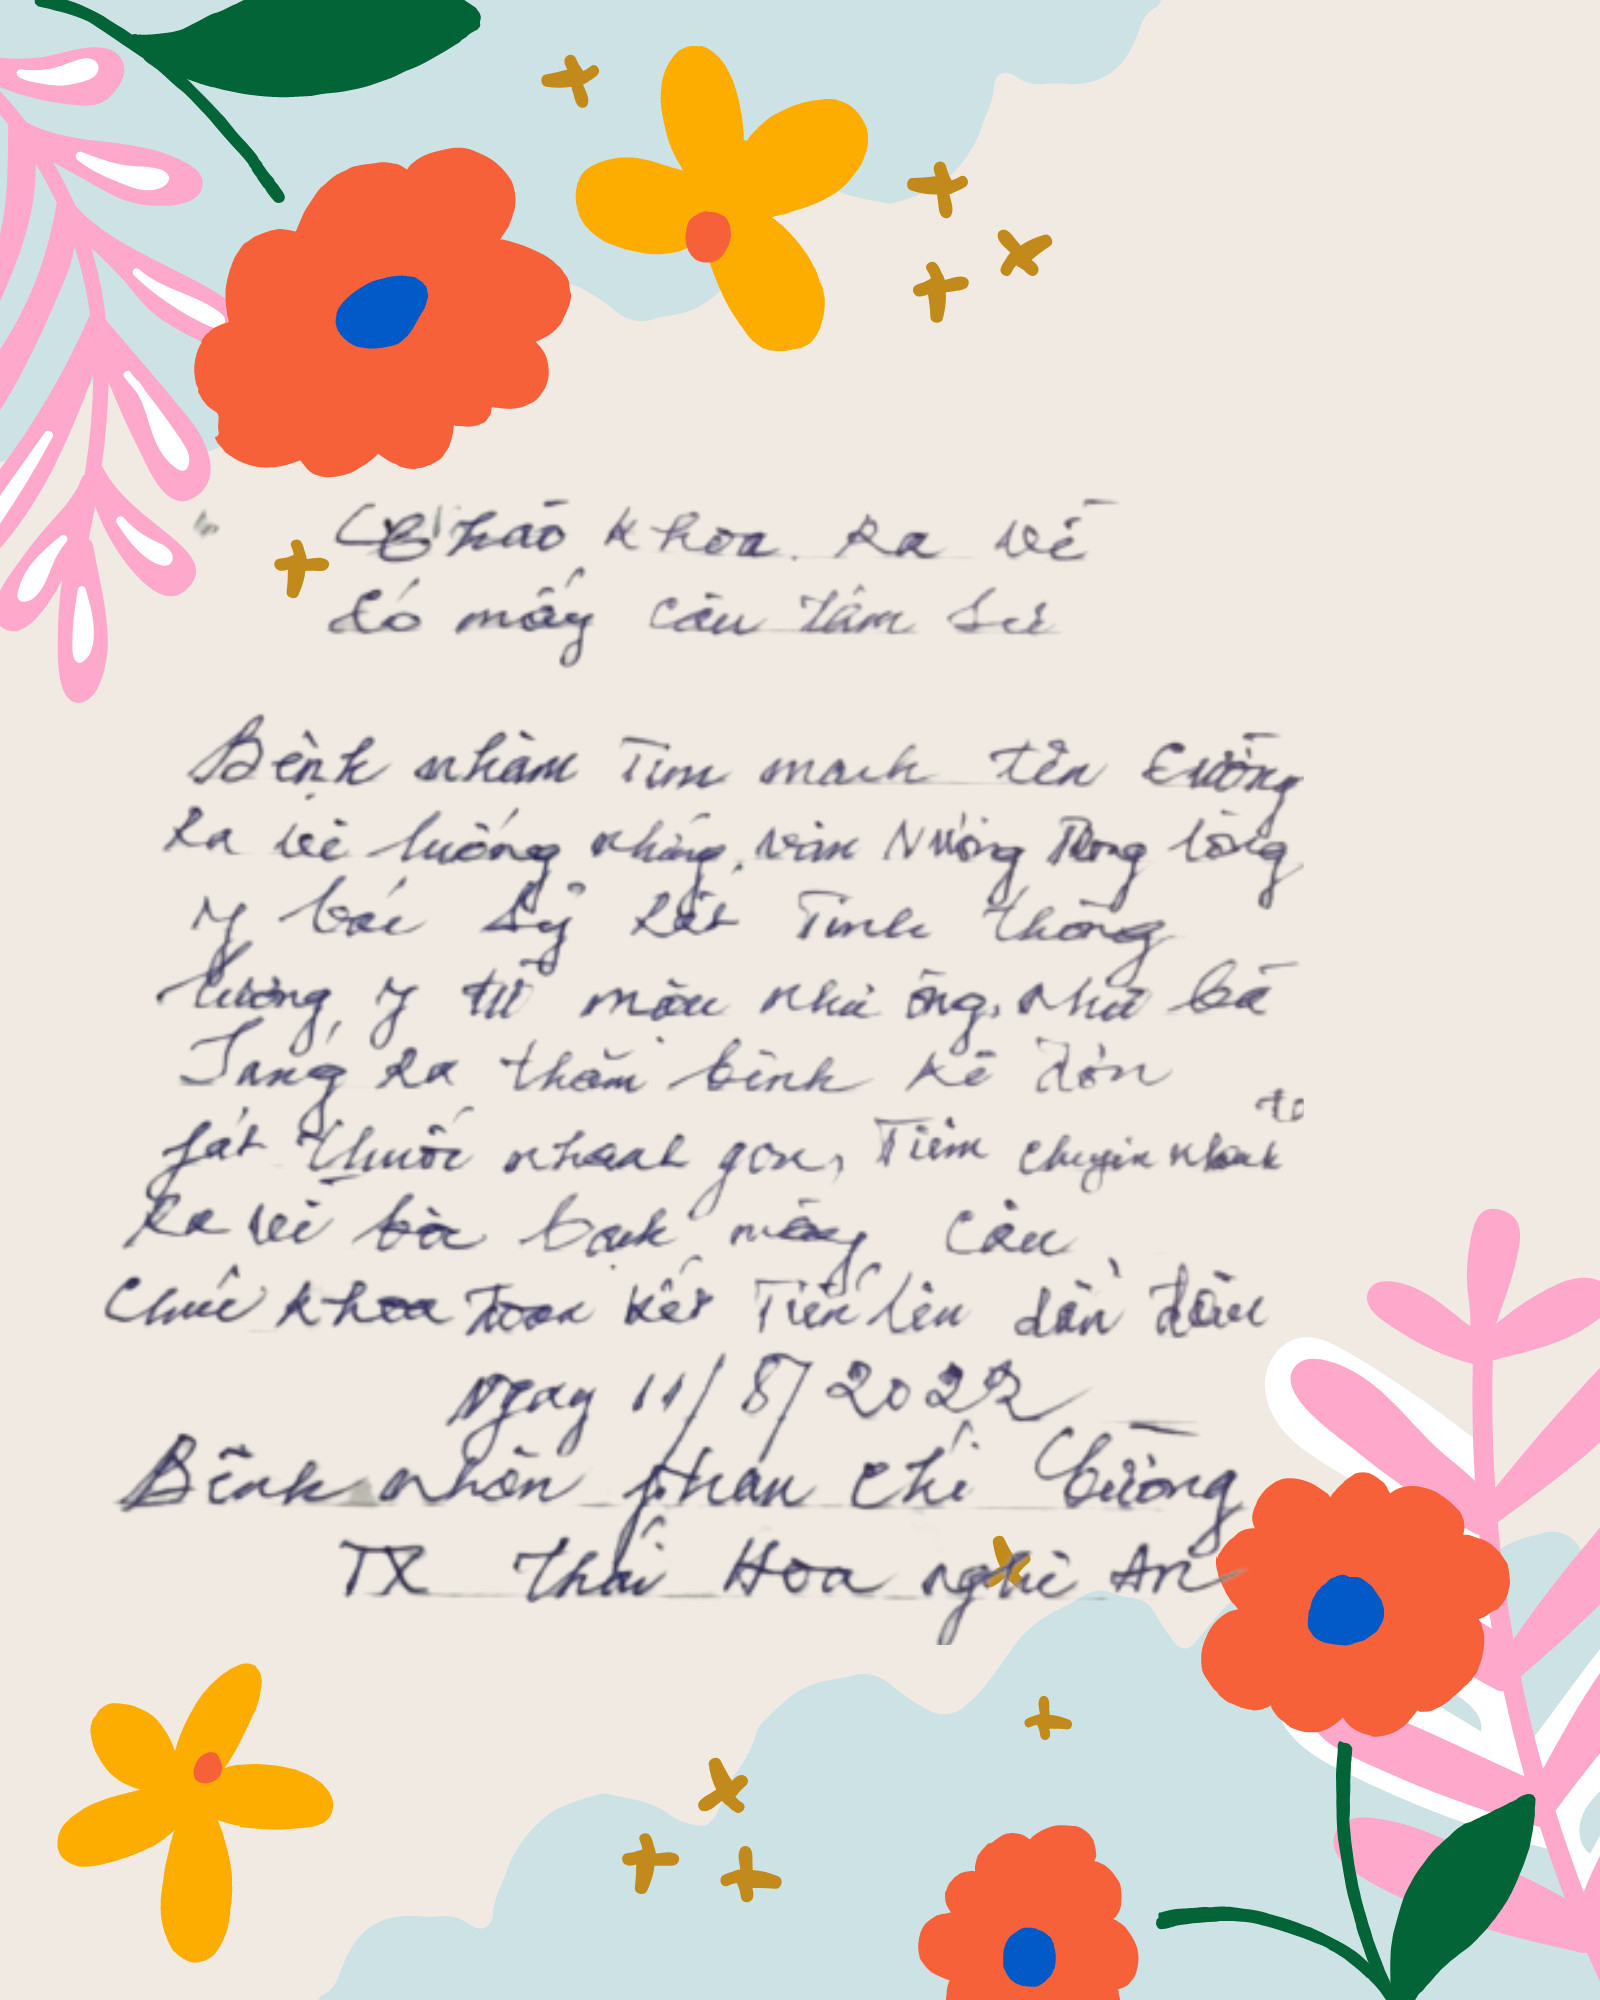 Chào khoa ra về
Có mấy câu tâm sự
Bệnh nhân Tim mạch tên Cường
Ra về luống nhưng vấn Trong lòng
Y bác Sỹ rất Tinh thông
lương y từ mẫu như ông, như bà
Sáng ra thăm bệnh kê đơn
fát thuốc nhanh gọn, Tiêm chuyền nhanh
Ra về mấy câu
Chúc khoa Đoàn kết Tiến lên dẫn đầu
Ngay 11/8/2022
Bệnh nhân phan chí Cường
TX Thái Hoa nghệ An